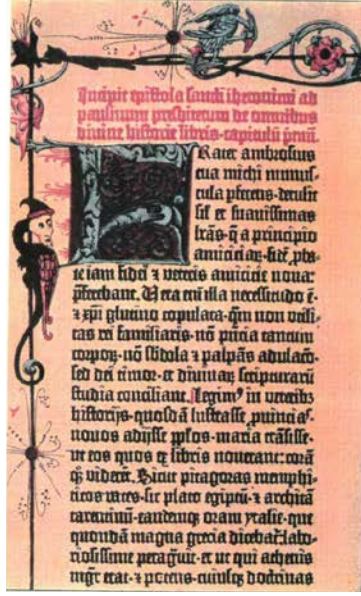 Incipit epistola sancti iheronimi ad
paulinum presbiterum de omnibus
divine historie libris·capitulū pmū.
Frater ambrosius
tua michi munus-
cula pferens·detulit
sil' et suavissimas
lrās·q̄ a principio
amiciciaꝝ·fidē pba-
te iam fidei ⁊ veteris amicicie nova
pferebant. Vera enī illa necessitudo ē·
⁊ xpī glutino copulata·qm̄ non utili-
tas rei familiaris·nō pn̄cia tantum
corpoꝝ·nō s̄bdola ⁊ palpās adulacō·
sed dei timor·et divinaꝝ scripturarū
studia conciliant. Legimꝰ in veteribꝫ
historijs·quosdā lustrasse puīcias·
novos adijsse pplos·maria trāsisse·
ut eos quos ex libris noverant: corā
qꝫ viderēt. Sicut pitagoras memphi-
ticos vates·sic plato egiptū·⁊ architā
tarentinū·eandemqꝫ oram ytalie·que
quondā magna grecia dicebat·labo-
riosissime peragravit·et ut qui athenis
mgr̄ erat·⁊ potens·cuiusqꝫ doctrinas